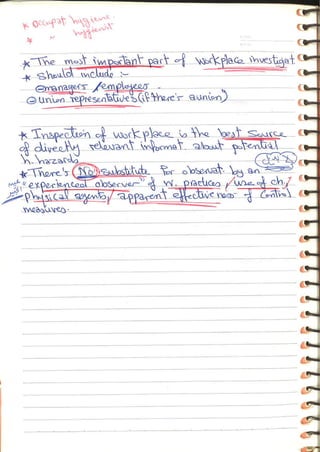 * Occupat hygiene
* " hygienist
* The most important part of workplace investigat.
* should include :-
① managers / employees.
② union representatives (if there's a union)
* Inspection of work place is the best source
of directly relevant informat. about potential
h. hazards
* There's No substitute for observat by an
"experienced observer" of w. practices / use of ch/
physical agents / apparent effectiveness of control
measures.